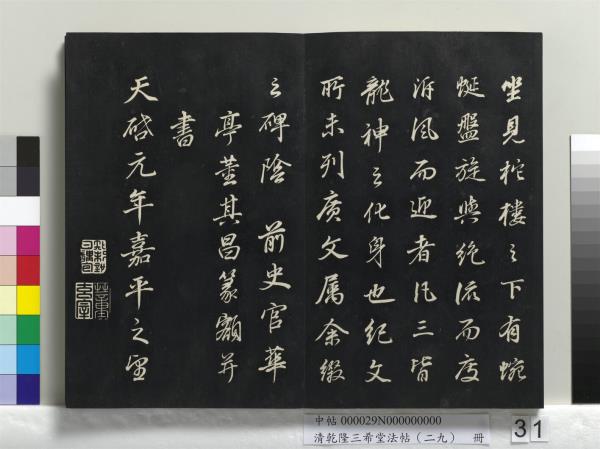 坐見柁樓之下有蜿
蜒盤旋與絶流而度
泝風而迎者凡三皆
龍神之化身也紀文
所未列庚文屬余綴
之碑陰 前史官華
亭董其昌篆額并
書
天啓元年嘉平之望
中帖 000029N000000000
清乾隆三希堂法帖（二九） 冊
31